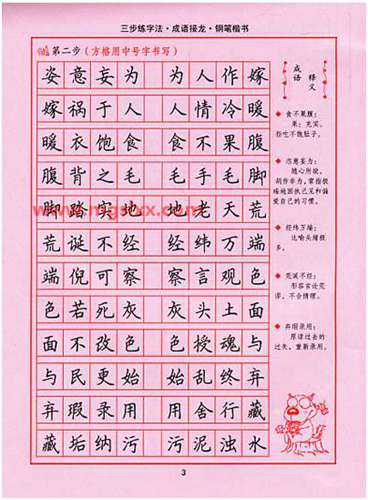 三步练字法·成语接龙·钢笔楷书
第二步（方格用中号字书写）
姿意妄为 为人作嫁
嫁祸于人 人情冷暖
暖衣饱食 食不果腹
腹背之毛 毛手毛脚
脚踏实地 地老天荒
荒诞不经 经纬万端
端倪可察 察言观色
色若死灰 灰头土面
面不改色 色授魂与
与民更始 始乱终弃
弃瑕录用 用舍行藏
藏垢纳污 污泥浊水
成语
释义
食不果腹：
果：充实。
指吃不饱肚子。
恣意妄为：
随心所欲，
胡作非为，常指极
端地固执己见和偏
爱自己的习惯。
经纬万端：
比喻头绪很多。
荒诞不经：
形容言论荒
谬，不合情理。
弃瑕录用：
原谅过去的
过失，重新录用。
3